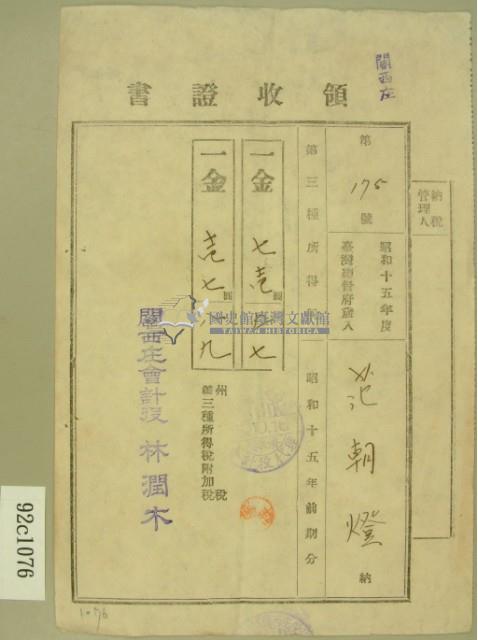 關西庄
領收證書
納稅管理人
第175號
昭和十五年度
臺灣總督府歲入
范朝燈 納
第三種所得稅
昭和十五年前期分
一金 七壱圓 七
一金 壱七圓 九
州稅
第三種所得稅附加稅
關西庄會計役 林潤木
國史館臺灣文獻館
TAIWAN HISTORICA
92c1076
1076